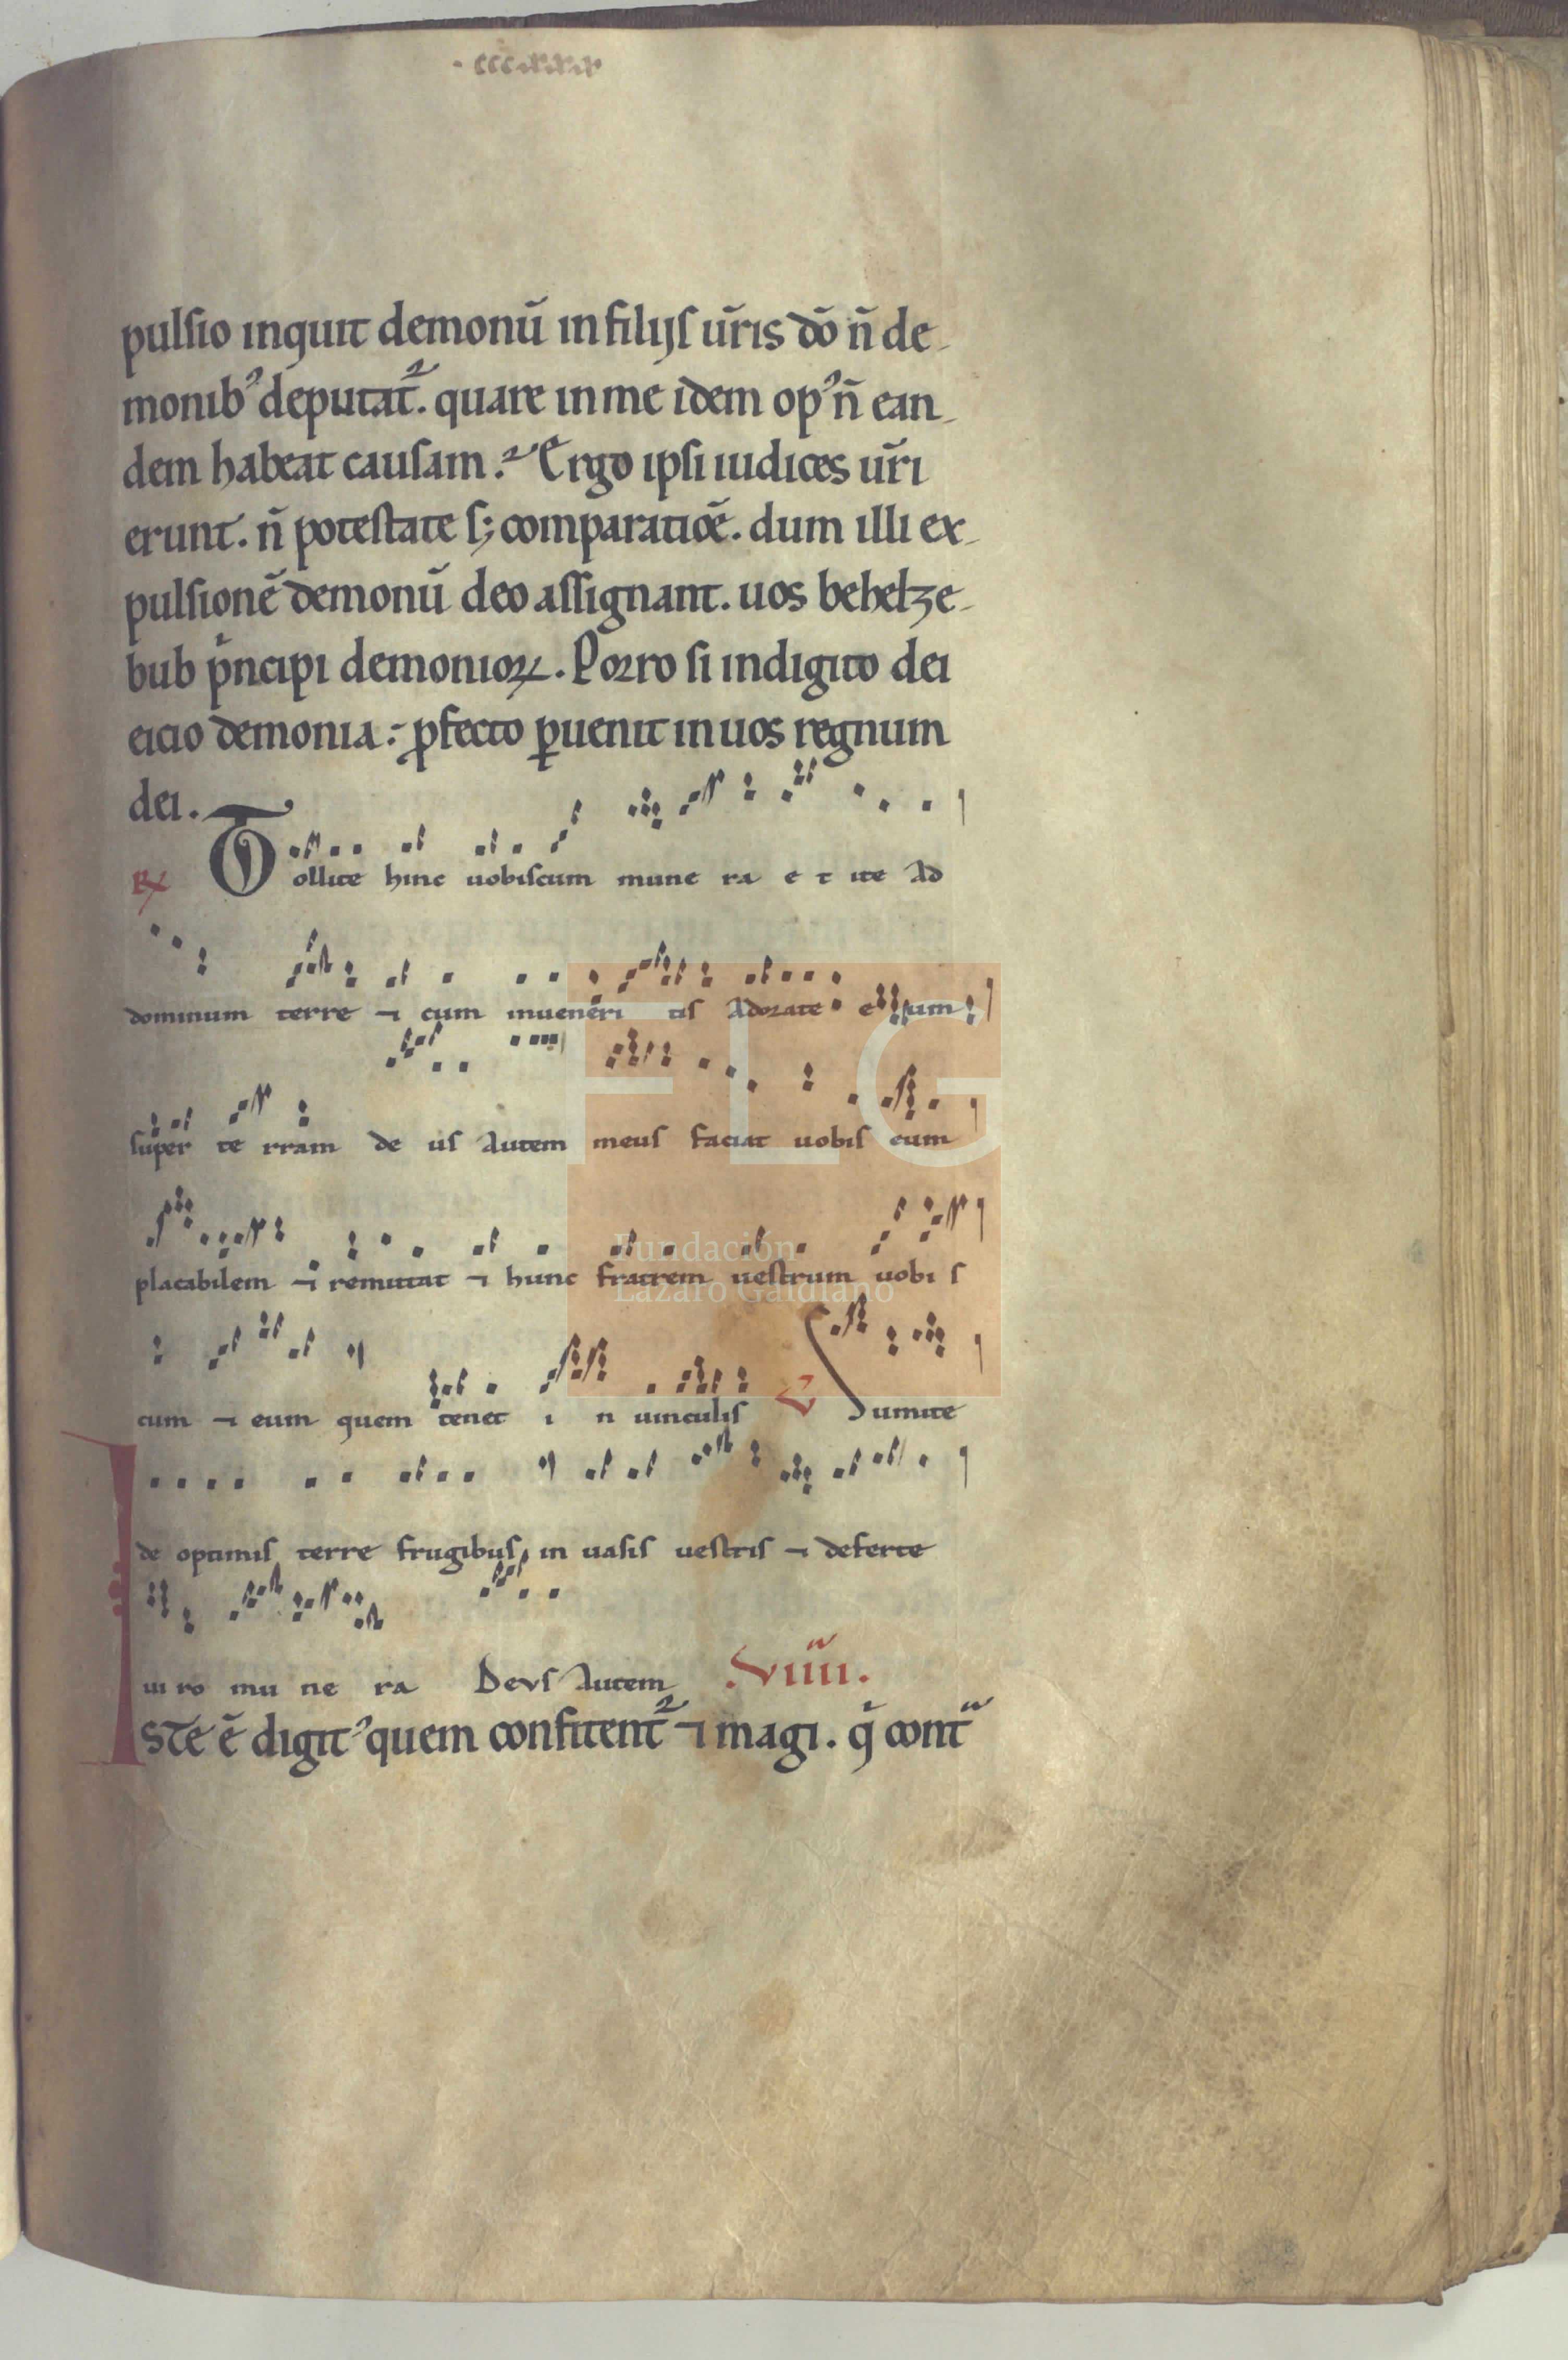 ·ccc·xx·ix·
pulsio inquit demonũ in filijs ur̃is dõ ñ de-
monibꝰ deputat᷑. quare in me idem opꝰ ñ ean-
dem habeat causam. Ergo ipsi iudices ur̃i
erunt. ñ potestate s; comparatiõe. dum illi ex-
pulsionẽ demonũ deo assignant. uos behelze-
bub p̃ncipi demonioꝝ. Porro si in digito dei
eicio demonia: ꝓfecto ꝑuenit in uos regnum
dei.
℟ Tollite hinc uobiscum mune ra e t ite Ad
dominum terre ⁊ cum inueneri tis Adorate e um
super te rram de us Autem meus faciat uobis eum
placabilem ⁊ remittat ⁊ hunc fratrem uestrum uobi s
cum ⁊ eum quem tenet i n uinculis Sumite
de optimis terre frugibus in uasis uestris ⁊ deferte
ui ro mu ne ra Deus Autem .viiii.
Iste ẽ digitꝰ quem confitent᷑ ⁊ magi. q̃ cont̃
Fundación
Lázaro Galdiano
FLG